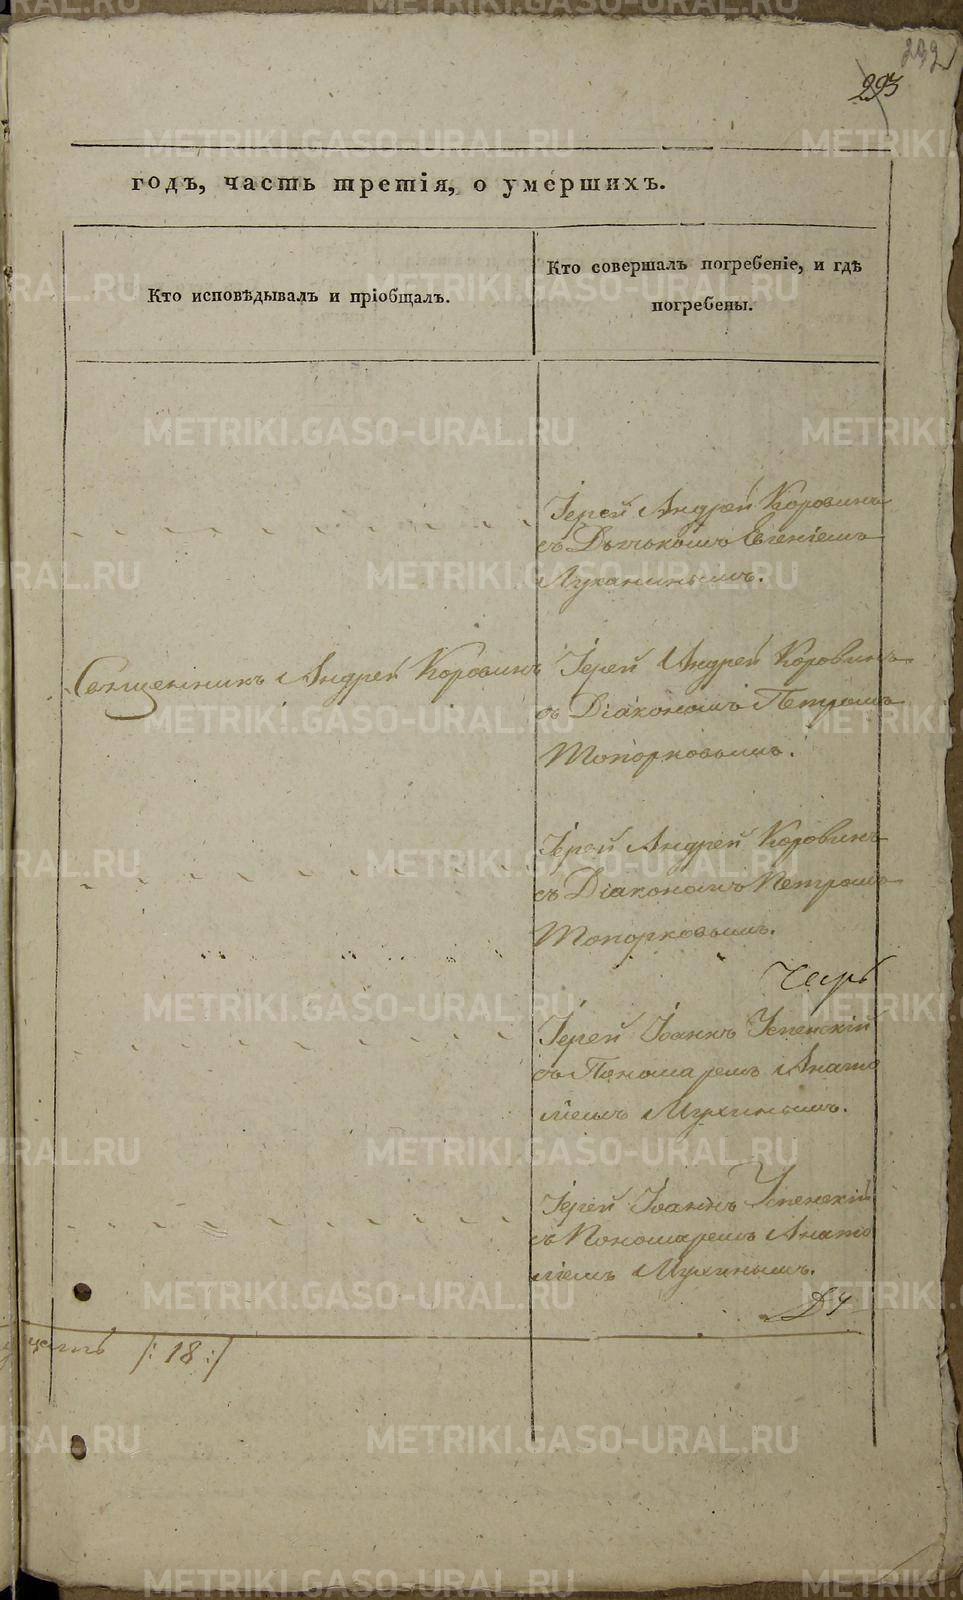 292
293
годъ, часть третія, о умершихъ.
Кто исповѣдывалъ и пріобщалъ.
Кто совершалъ погребеніе, и гдѣ
погребены.
Іерей Андрей Коровинъ
съ Дьячкомъ Евгеніемъ
Лукинынымъ.
Священникъ Андрей Коровинъ
Іерей Андрей Коровинъ
съ Діакономъ Петромъ
Топорковымъ.
Іерей Андрей Коровинъ
съ Діакономъ Петромъ
Топорковымъ.
Іерей Іоаннъ Успенскій
съ Пономаремъ Анато
ліемъ Мухинымъ.
Іерей Іоаннъ Успенскій
съ Пономаремъ Анато
ліемъ Мухинымъ.
/: 18 :/
METRIKI.GASO-URAL.RU